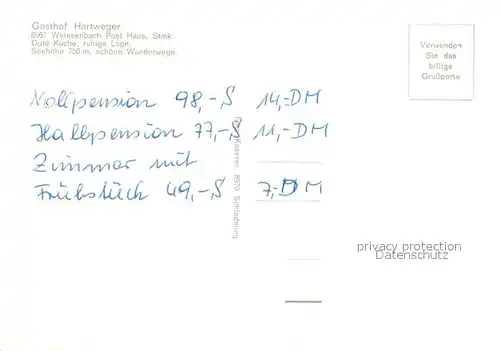 Gasthof Hartweger
8967 Weissenbach Post Haus, Stmk.
Gute Küche, ruhige Lage,
Seehöhe 750 m, schöne Wanderwege.
Verwenden
Sie das
billige
Grußporto
Vollpension 98,-S 14,-DM
Halbpension 77,-S 11,-DM
Zimmer mit
Frühstück 49,-S 7,-DM
Kaserer, 8970 Schladming
privacy protection
Datenschutz